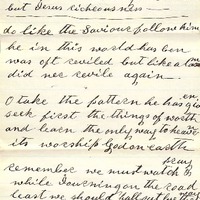 but Jesus richeousness
do like the Saviour follow him
he in this world has ben
was oft reviled but like a lam
did ner revile again
O take the pattern he has given
seek first the things of worth
and learn the only way to heaven
its worship God on earth
remember we must watch & pray
while Journing on the road
least we should fall out by the